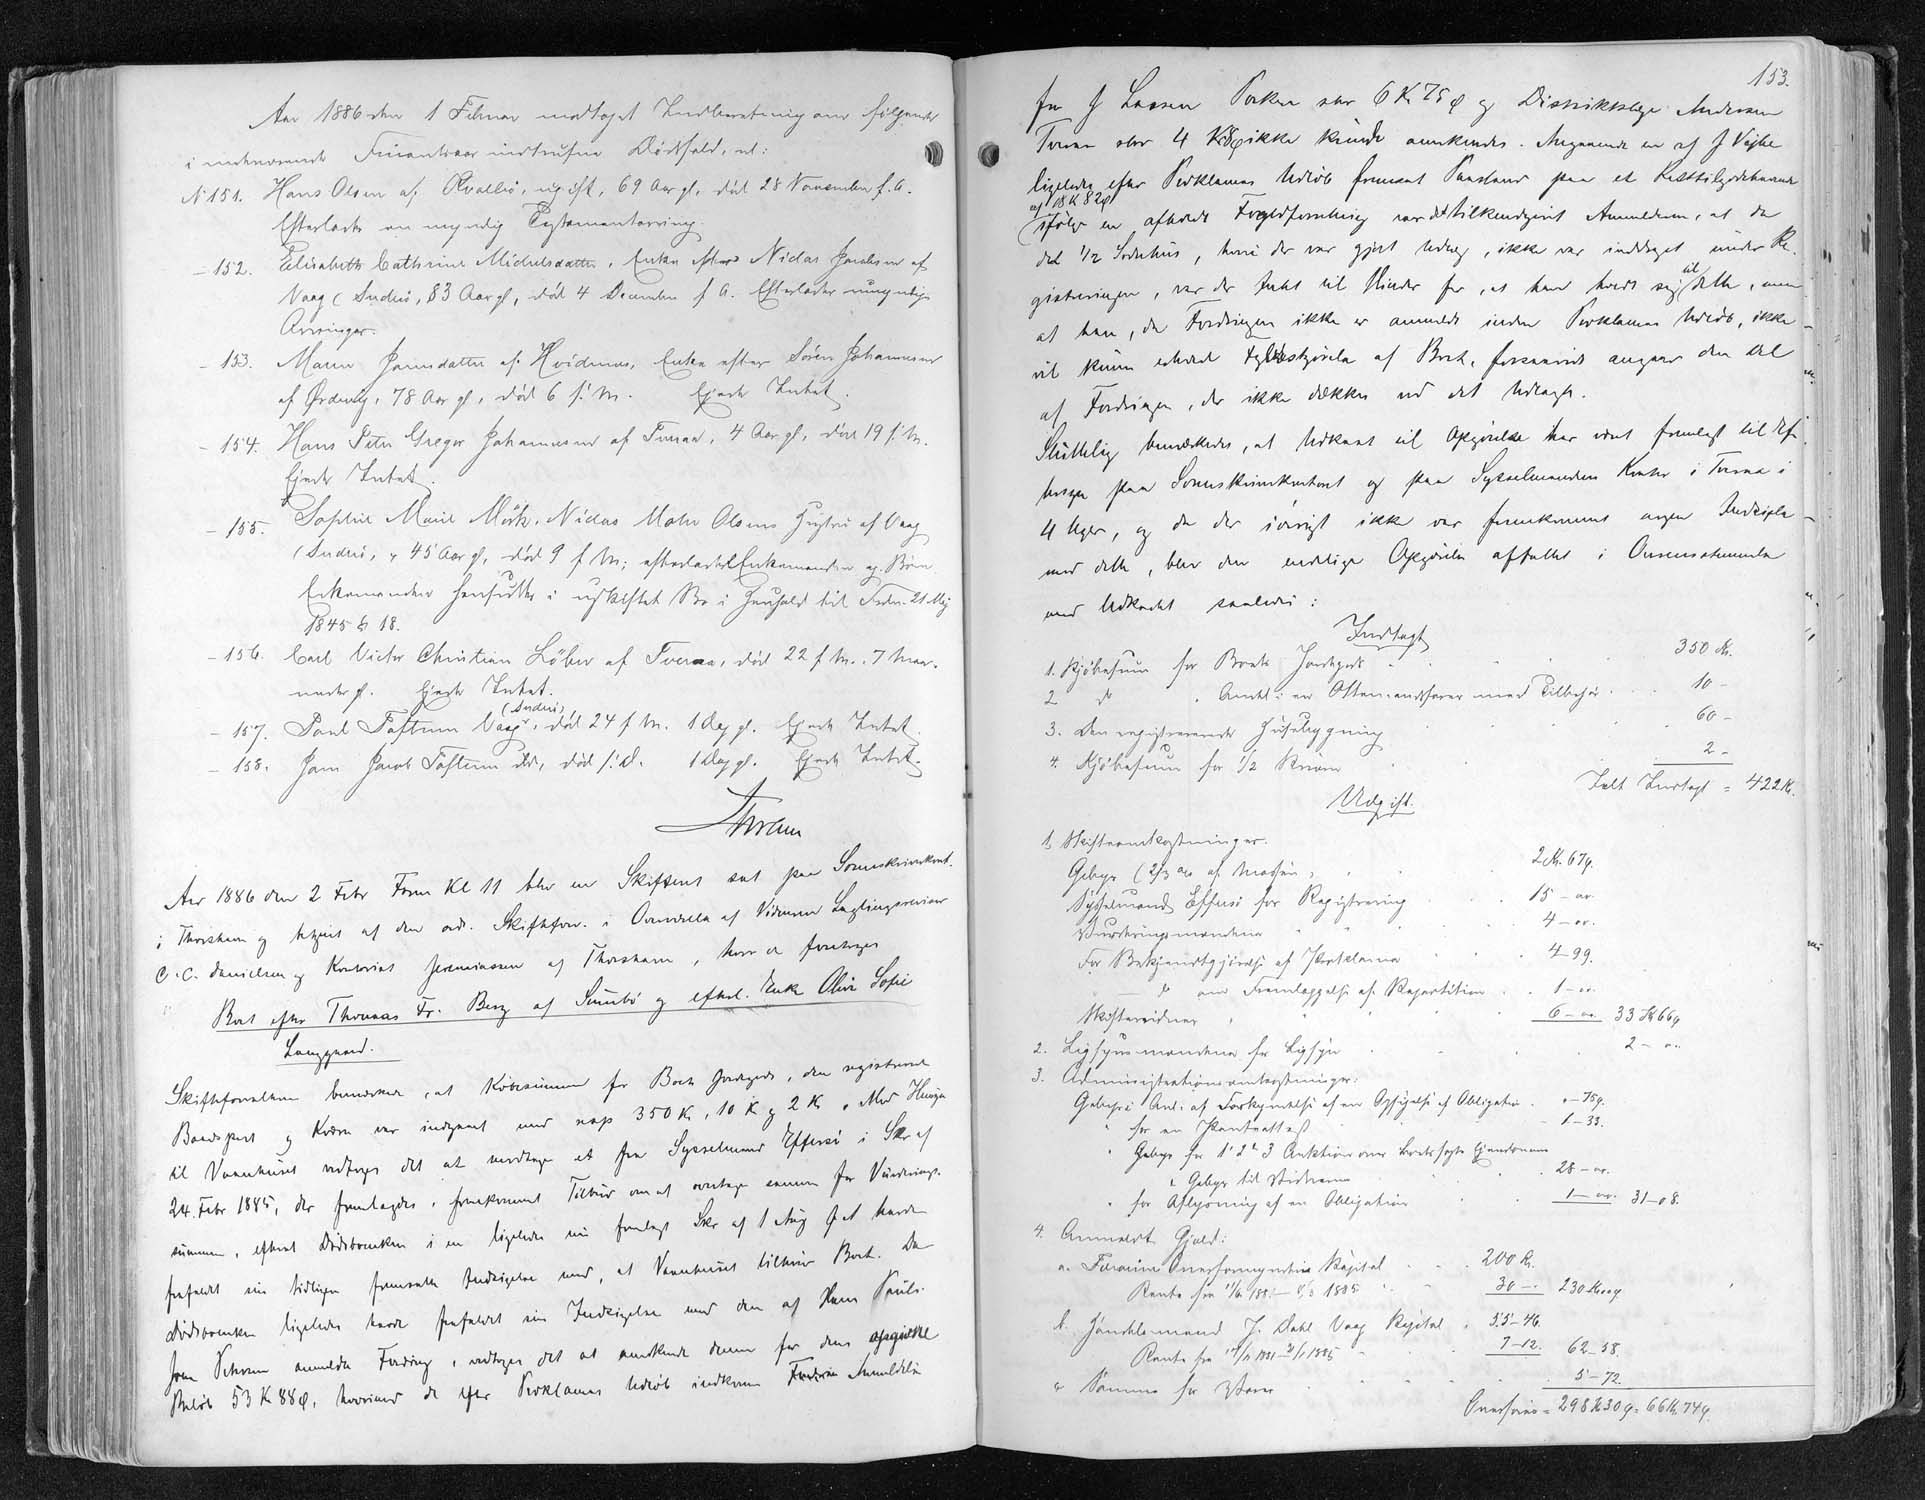 Aar 1886 den 1 Februar modtaget Indberetning om følgende
i indeværende Finantsaar indtrufne Dødsfald, nl:
N 151. Hans Olsen af Qvalbø, ugift, 69 Aar gl, død 28 November f. A.
Efterlader en myndig Testamentarving.
- 152. Elisabeth Cathrine Michelsdatter, Enke efter Niclas Jacobsen af
Vaag (Suderø, 83 Aar gl, død 4 December f A. Efterlader myndige
Arvinger.
- 153. Maren Joensdatter af Hvidenæs, Enke efter Søren Johannesen
af Ørdevig, 78 Aar gl, død 6 f. M. Ejede Intet.
- 154. Hans Peter Gregor Johannesen af Tveraa, 4 Aar gl, død 19 f. M.
Ejede Intet.
- 155. Sophie Marie Mørk, Niclas Mohr Olsens Hustru af Vaag
(Suderø, 45 Aar gl, død 9 f M; efterlader Enkemanden og Børn
Enkemanden hensidder i uskiftet Bo i Henhold til Frdn. 21 Maj
1845 § 18.
- 156. Carl Victor Christian Löbner af Tveraa, død 22 f M. 7 Maa-
neder gl. Ejede Intet.
(Suderø)
- 157. Poul Toftum Vaag, død 24 f M. 1 Dag gl. Ejede Intet.
- 158. Joen Jacob Toftum ibd, død s. D. 1 Dag gl. Ejede Intet.
Aar 1886 den 2 Febr Form Kl 11 blev en Skifteret sat paa Sorenskriverkont.
i Thorshavn og betjent af den ord. Skifteforv. i Overværelse af Vidnerne Lagtingsrevisor
C. C. Danielsen og Kontorist Jeremiassen af Thorshavn, hvor da foretoges
Boet efter Thomas Fr. Berg af Sumbø og efterl. Enke Olivia Sofie
Langgaard.
Skifteforvalteren bemærkede, at Købesummen for Boets Jordegods, den registrerede
Baadspart og Kværn var indgaaet med resp 350 K, 10 K og 2 K. Med Hensyn
til Vaanhuset vedtoges det at modtage et fra Sysselmand Effersø i Skr af
24. Febr 1885, der fremlagdes, fremkommet Tilbud om at overtage samme for Vurderings-
summen, efterat Dødsboenken i en ligeledes nu fremlagt Skr af 1 Aug f A havde
frafaldet sin tidligere fremsatte Indsigelse mod, at Vaanhuset tilhører Boet. Da
Dødsboenken ligeledes havde frafaldet sin Indsigelse mod den af Hans Pauli
Joen Schrøer anmeldte Fordring, vedtoges det at anerkende denne for dens opgivne
Beløb 53 K 88 Ø, hvorimod de efter Proklamas Udløb indkomne Fordringers Anmeldelse
153.
fra J Lassen Porkere stor 6 Kr 75 Ø og Distriktslæge Andersen
Tveraa stor 4 Kr 8 Ø ikke kunde anerkendes. Angaaende en af J Vejhe
ligeledes efter Proklamas Udløb fremsat Paastand paa et Restitilgodehavende
af 18 K 82 Ø
ifølge en afholdt Foged forretning var det tilkendegivet Anmelderen, at da
det 1/2 Sodehus, hvori der var gjort Udlæg, ikke var inddraget under Re-
gistreringen, var der Intet til Hinder for, at han holdt sig til dette, men
at han, da Fordringen ikke er anmeldt inden Proklamas Udløb, ikke
vil kunne erholde Fyldestgjørelse af Boet, forsaavidt angaar den Del
af Fordringen, der ikke dækkes ved det Udlagte.
Sluttelig bemærkedes, at Udkast til Opgørelse har været fremlagt til Ef-
tersyn paa Sorenskriverkontoret og paa Sysselmandens Kontor i Tveraa i
4 Uger, og da der iøvrigt ikke var fremkommet nogen Indsigelse
mod dette, blev den endelige Opgørelse affattet i Overensstemmelse
med Udkastet saaledes:
Indtægt
1. Kjøbesum for Boets Jordegods 350 Kr.
2 do. Andel i en Ottemandsfarer med Tilbehør 10 -
3. Den registrerede Husebygning 60 -
4. Kjøbesum for 1/2 Kværn 2 -
Ialt Indtægt = 422 Kr.
Udgift.
1. Skifteomkostninger.
Gebyr (2/3 % af Massen) 2 Kr. 67 Ø.
Sysselmand Effersø for Registrering 15 - "
Vurderingsmændene 4 - "
For Bekjendtgjørelse af Proklama 4 - 99.
do. om Fremlæggelse af Repartition 1 - "
Skiftevidner 6 - " 33 Kr 66 Ø
2. Ligsynsmændene for Ligsyn 2 - "
3. Administrationsomkostninger:
Gebyr i Anl. af Forkyndelse af en Opsigelse af Obligation " - 75 Ø.
" for en Panteattest 1 - 33.
" Gebyr for 1' 2' & 3 Auktion over Boets faste Ejendomme
28 - "
" Gebyr til Vidnerne
" for Aflysning af en Obligation 1 - " 31 - 08.
4. Anmeldt Gjæld:
a. Færøernes Overformynderie Kapital 200 Kr.
Rente fra 11/6 188 - 1885 30 - " 230 Kr " Ø
b. Handelsmand J. Dahl Vaag Kapital 55 - 46.
Rente fra 11/11 1881 - 1885 7 - 12. 62 - 58.
c Samme for Varer 5 - 72.
Overføres = 298 Kr 30 Ø = 66 Kr. 74 Ø.